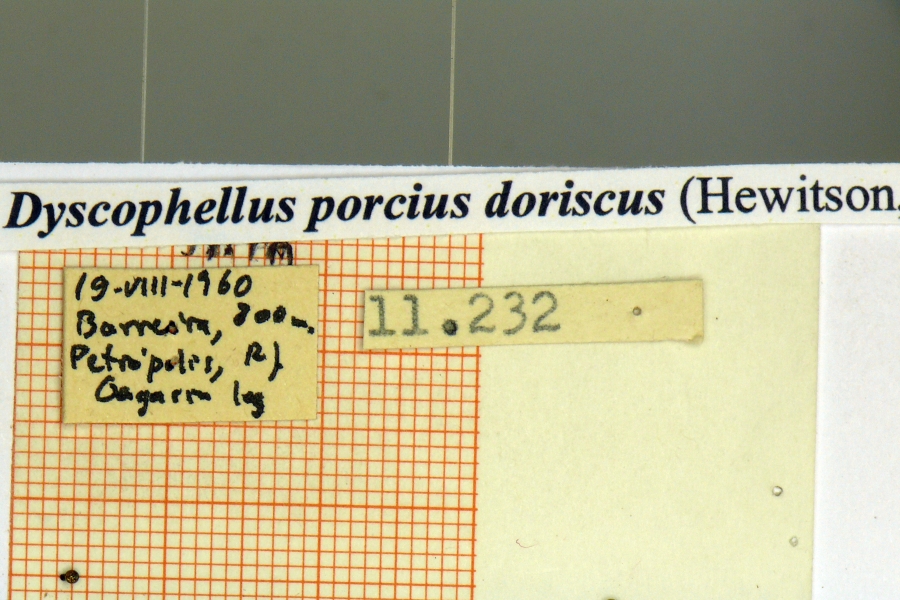 Dyscophellus porcius doriscus (Hewitson,
19-VIII-1960
Barreira, 800 m.
Petrópolis, RJ
Gagarin leg
11.232